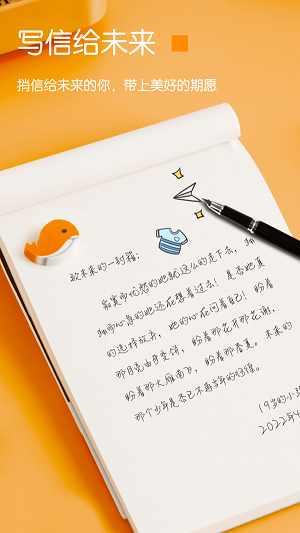 写信给未来
捎信给未来的你，带上美好的期愿
致未来的一封籍：
寂寞中忧愁的她就这么的走下去，翔
翔中心急的她还在想着过去！是否她真
的选择放弃，她的心在问着自己！盼着
那月亮由身变饼，盼着那花开那花谢，
盼着那大雁南飞，盼着那春夏。未来的
那个少年是否已不再当年的彷徨。
19岁的小
2022年4